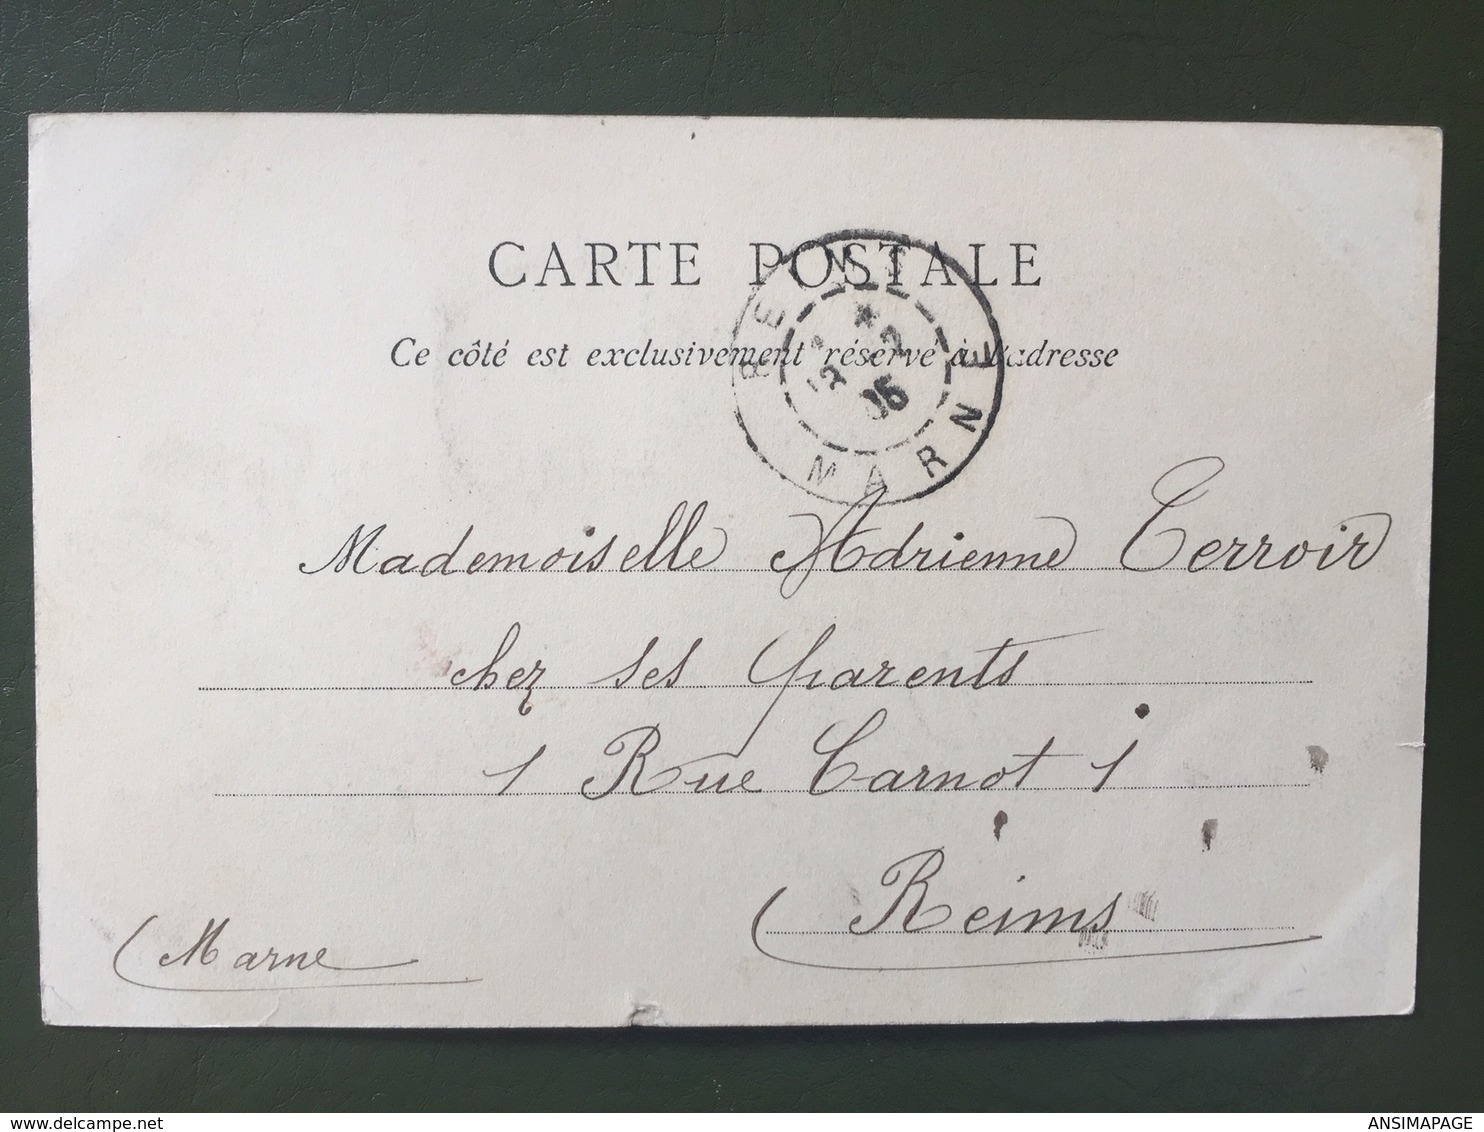 CARTE POSTALE
Ce côté est exclusivement réservé à l'adresse
MARNE
05
Mademoiselle Adrienne Terroir
chez ses parents
1 Rue Carnot 1
Reims
Marne
www.delcampe.net
ANSIMAPAGE